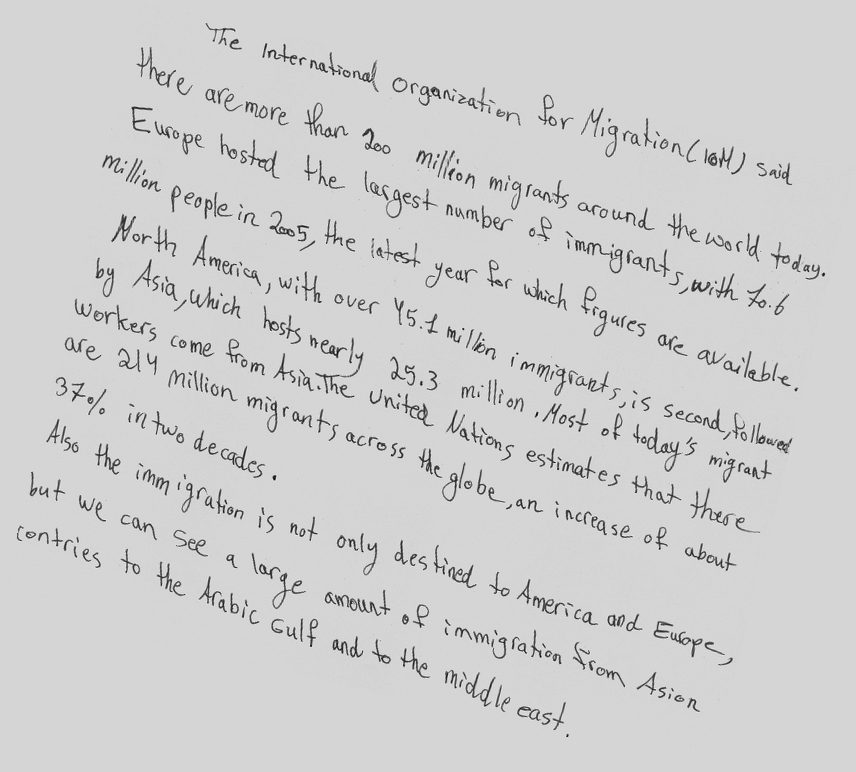 The International Organization for Migration (IOM) said
there are more than 200 million migrants around the world today.
Europe hosted the largest number of immigrants, with 70.6
million people in 2005, the latest year for which figures are available.
North America, with over 45.1 million immigrants, is second, followed
by Asia, which hosts nearly 25.3 million. Most of today's migrant
workers come from Asia. The United Nations estimates that there
are 214 million migrants across the globe, an increase of about
37% in two decades.
Also the immigration is not only destined to America and Europe,
but we can see a large amount of immigration from Asion
contries to the Arabic Gulf and to the middle east.